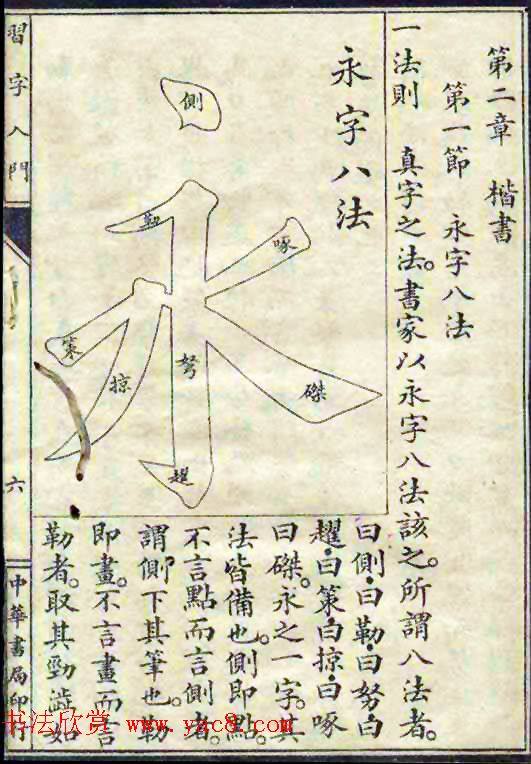 第二章　楷書
第一節　永字八法
一法則　真字之法。書家以永字八法該之。所謂八法者。
永字八法
側
勒
啄
策
掠
努
磔
趯
曰側。曰勒。曰努。曰
趯。曰策。曰掠。曰啄
曰磔。永之一字。其
法皆備也。側即點。
不言點而言側者。
謂側下其筆也。勒
即畫。不言畫而言
勒者。取其勁澁如
習字入門
六
中華書局印行
书法欣赏 www.yac8.com